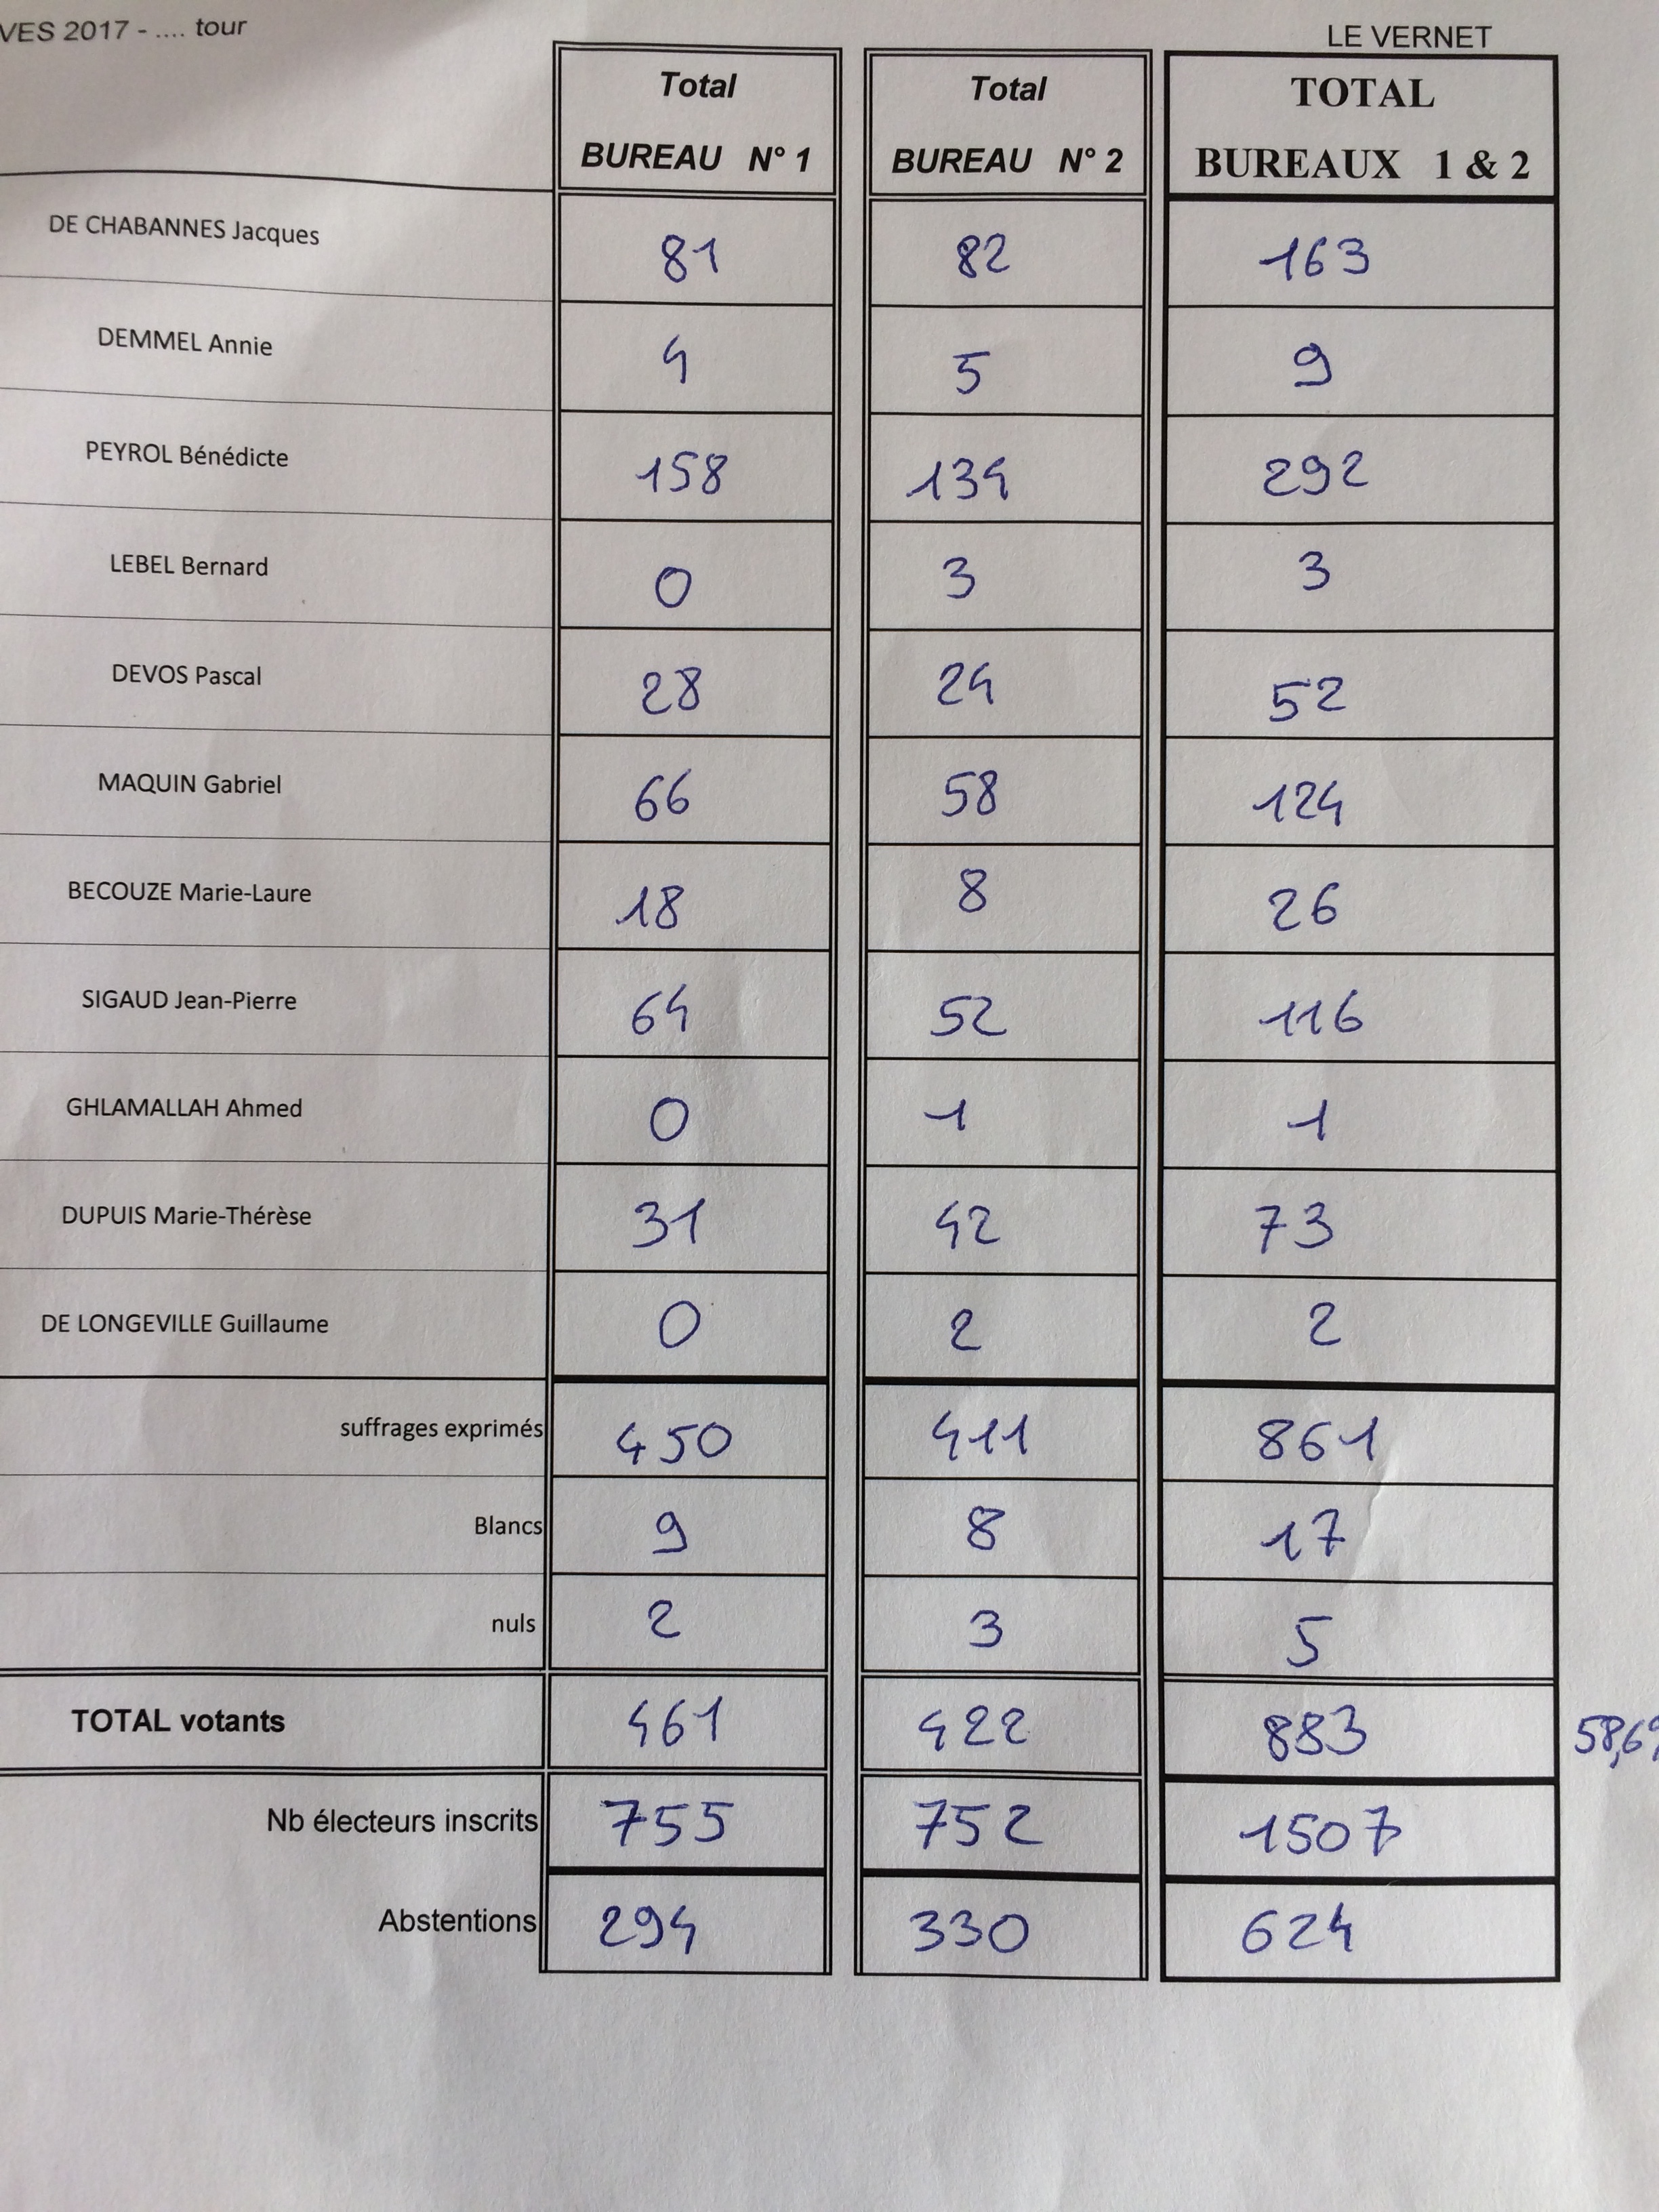 VES 2017 - .... tour
LE VERNET
Total BUREAU N° 1
Total BUREAU N° 2
TOTAL BUREAUX 1 & 2
DE CHABANNES Jacques 81 82 163
DEMMEL Annie 4 5 9
PEYROL Bénédicte 158 134 292
LEBEL Bernard 0 3 3
DEVOS Pascal 28 24 52
MAQUIN Gabriel 66 58 124
BECOUZE Marie-Laure 18 8 26
SIGAUD Jean-Pierre 64 52 116
GHLAMALLAH Ahmed 0 1 1
DUPUIS Marie-Thérèse 31 42 73
DE LONGEVILLE Guillaume 0 2 2
suffrages exprimés 450 411 861
Blancs 9 8 17
nuls 2 3 5
TOTAL votants 461 422 883 58,6
Nb électeurs inscrits 755 752 1507
Abstentions 294 330 624